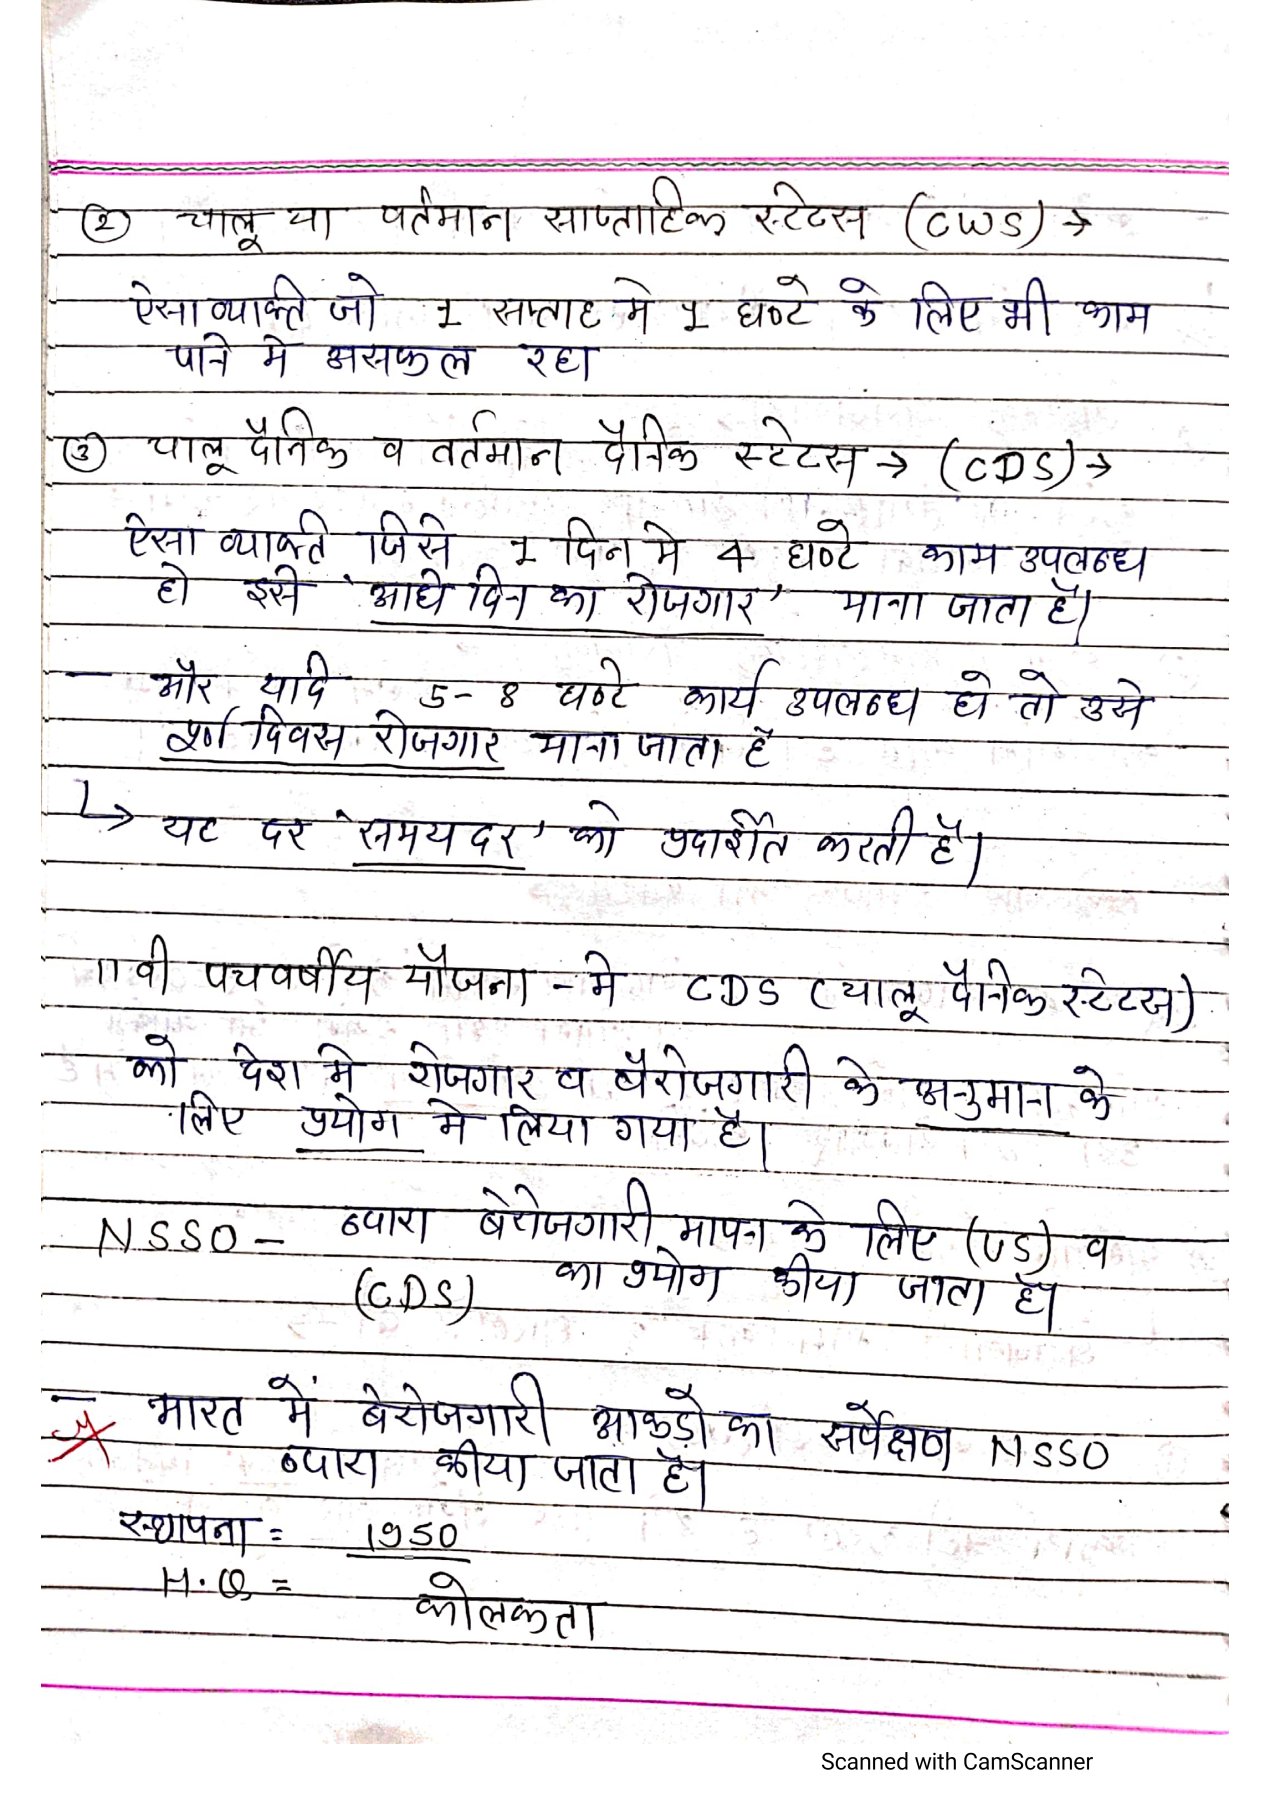 ② चालू या वर्तमान साप्ताहिक स्टेटस (CWS) →
ऐसा व्यक्ति जो 1 सप्ताह मे 1 घण्टे के लिए भी काम
पाने मे असफल रहा
③ चालू दैनिक व वर्तमान दैनिक स्टेटस → (CDS) →
ऐसा व्यक्ति जिसे 1 दिन मे 4 घण्टे काम उपलब्ध
हो इसे 'आधे दिन का रोजगार' माना जाता है।
- और यदि 5-8 घण्टे कार्य उपलब्ध हो तो उसे
पूर्ण दिवस रोजगार माना जाता है
↳ यह दर 'समय दर' को प्रदर्शित करती है।
11 वी पचवर्षीय योजना - मे CDS (चालू दैनिक स्टेटस)
को देश मे रोजगार व बैरोजगारी के अनुमान के
लिए प्रयोग मे लिया गया है।
NSSO - व्दारा बेरोजगारी मापन के लिए (US) व
(CDS) का प्रयोग कीया जाता है।
- भारत में बेरोजगारी आकड़ो का सर्वेक्षण NSSO
व्दारा कीया जाता है।
स्थापना = 1950
H.Q = कोलकता
Scanned with CamScanner